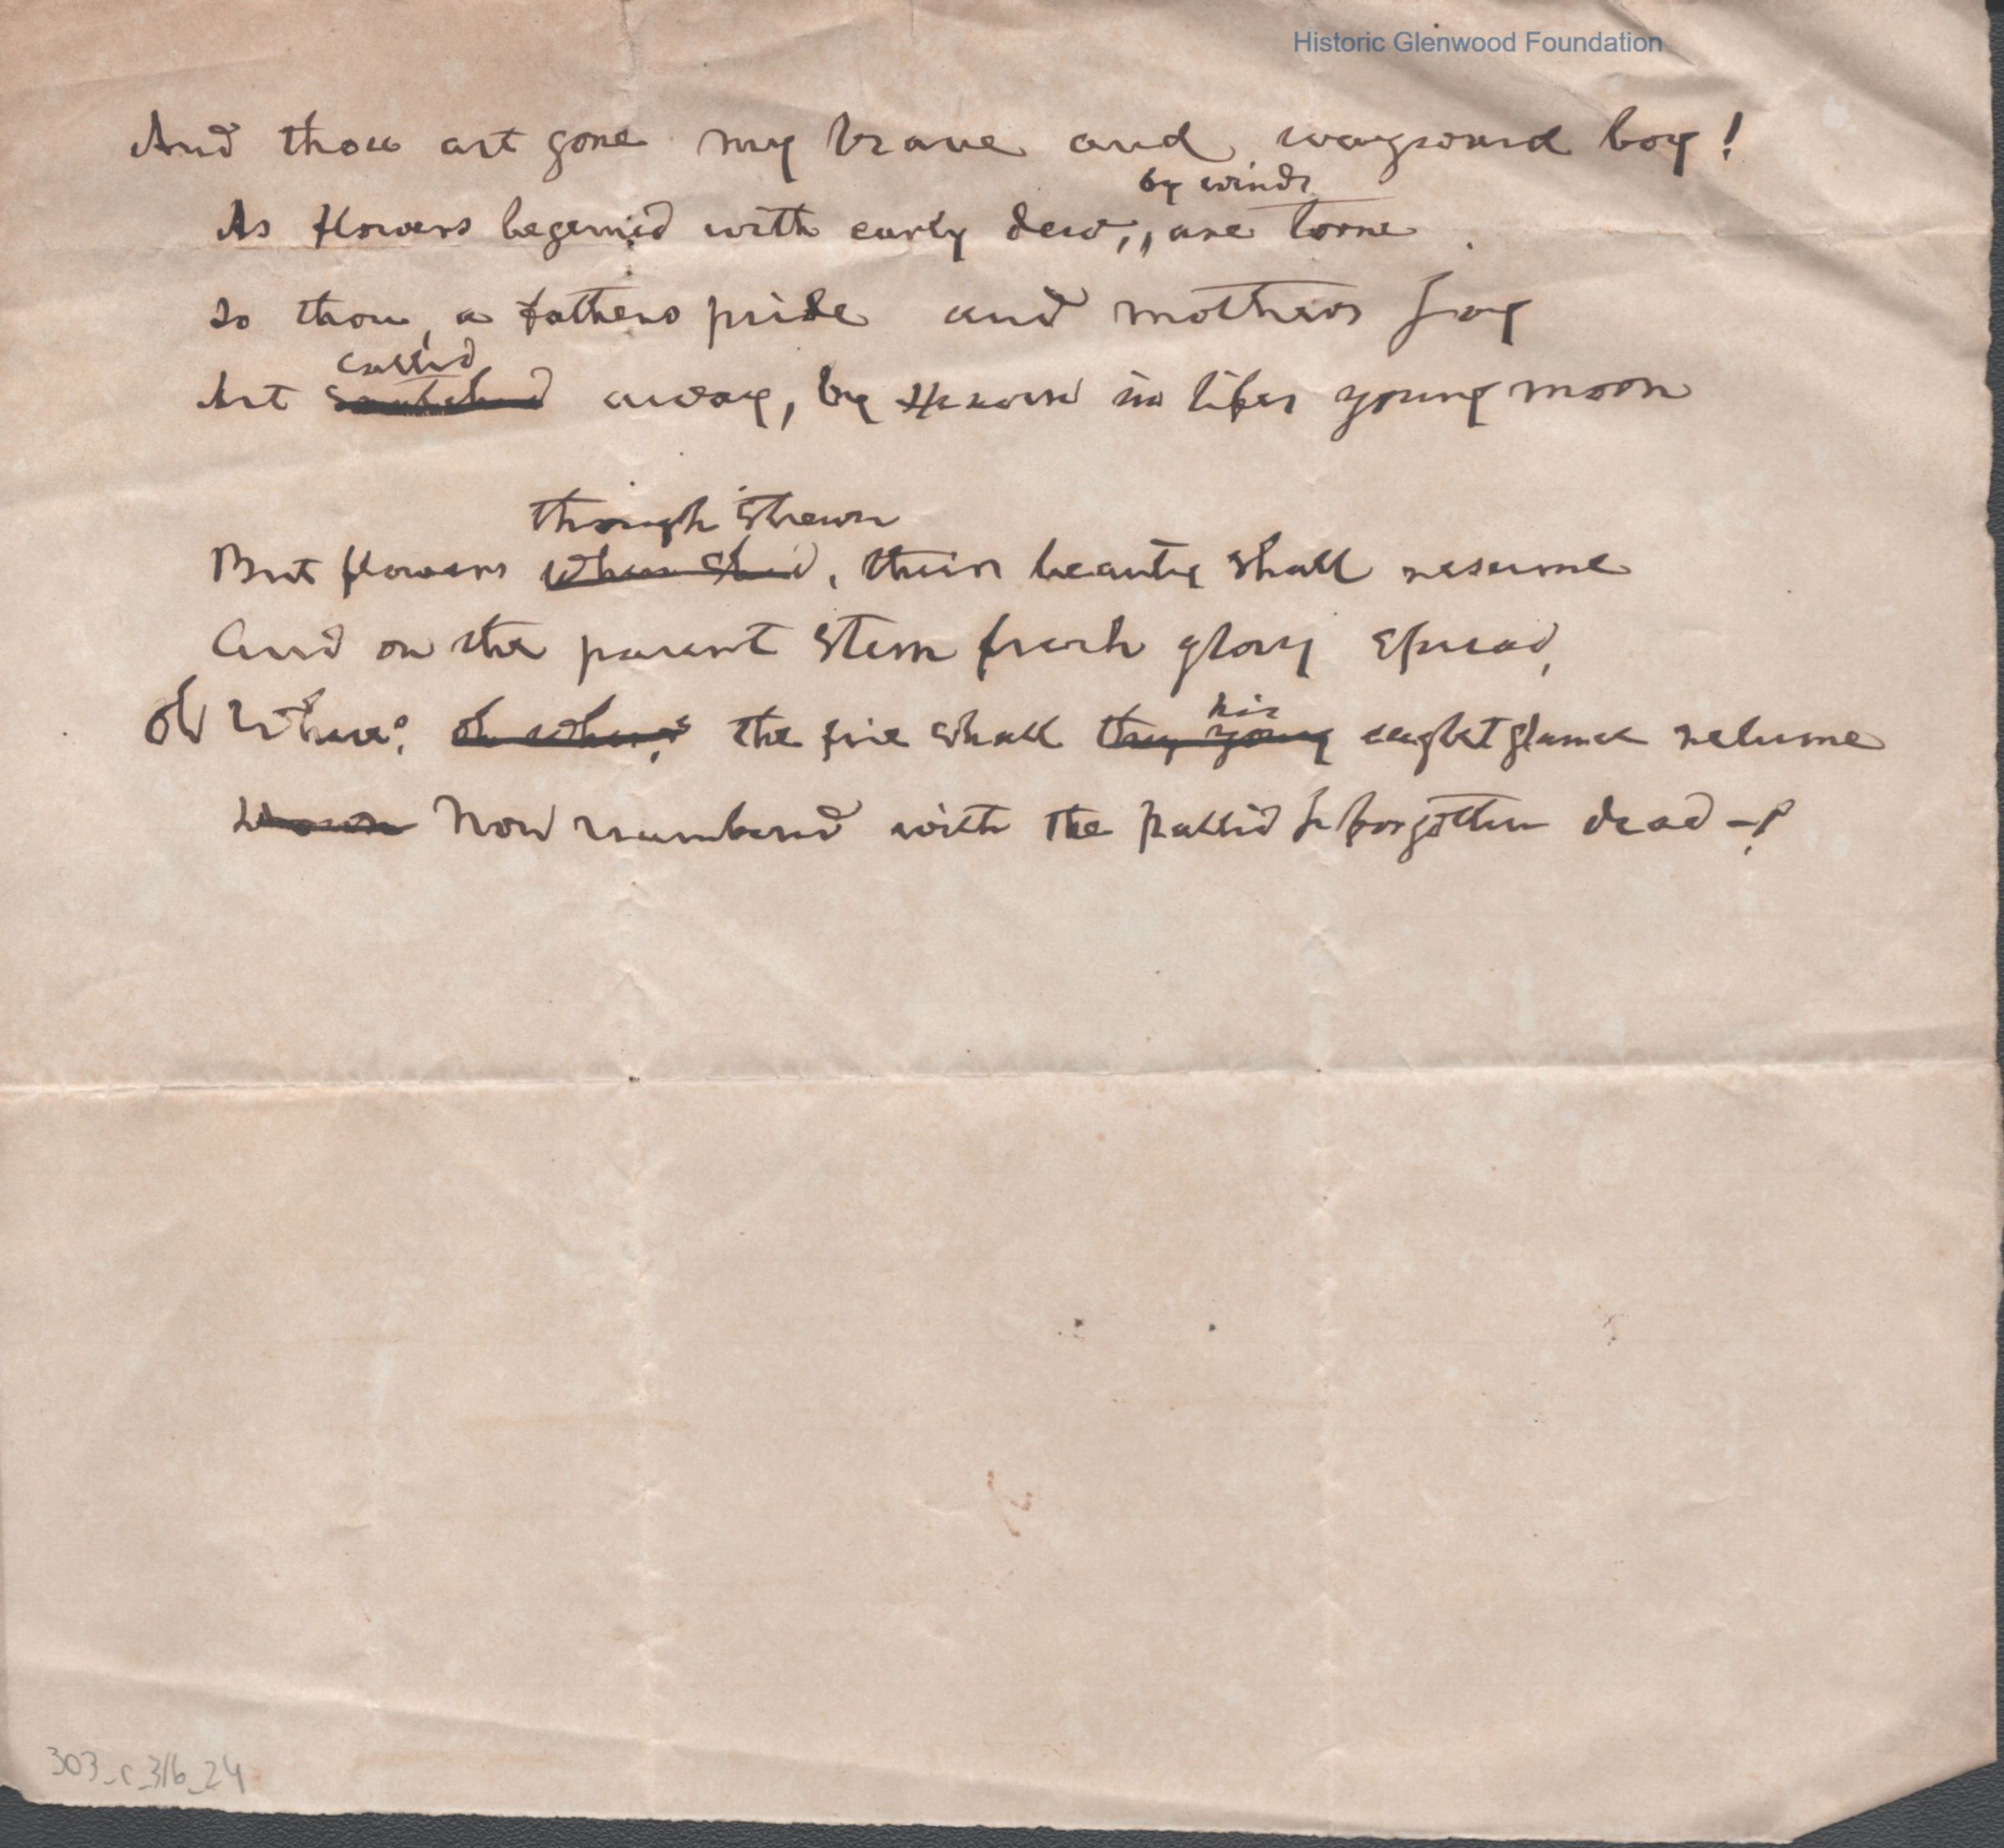 Historic Glenwood Foundation
And thou art gone my brave and wayward boy!
by winds
As flowers begem'd with early dew,, are torne
So thou, a fathers pride and mothers Joy
called
Art snatched away, by Heaven in lifes young moon
though strewn
But flowers when shed, their beauty shall resume
And on the parent stem fresh glory spread,
his
oh where? oh where? the fire shall thy young eaglet glance relume
Now numbered with the pallid & forgotten dead -?
303_c_316_24